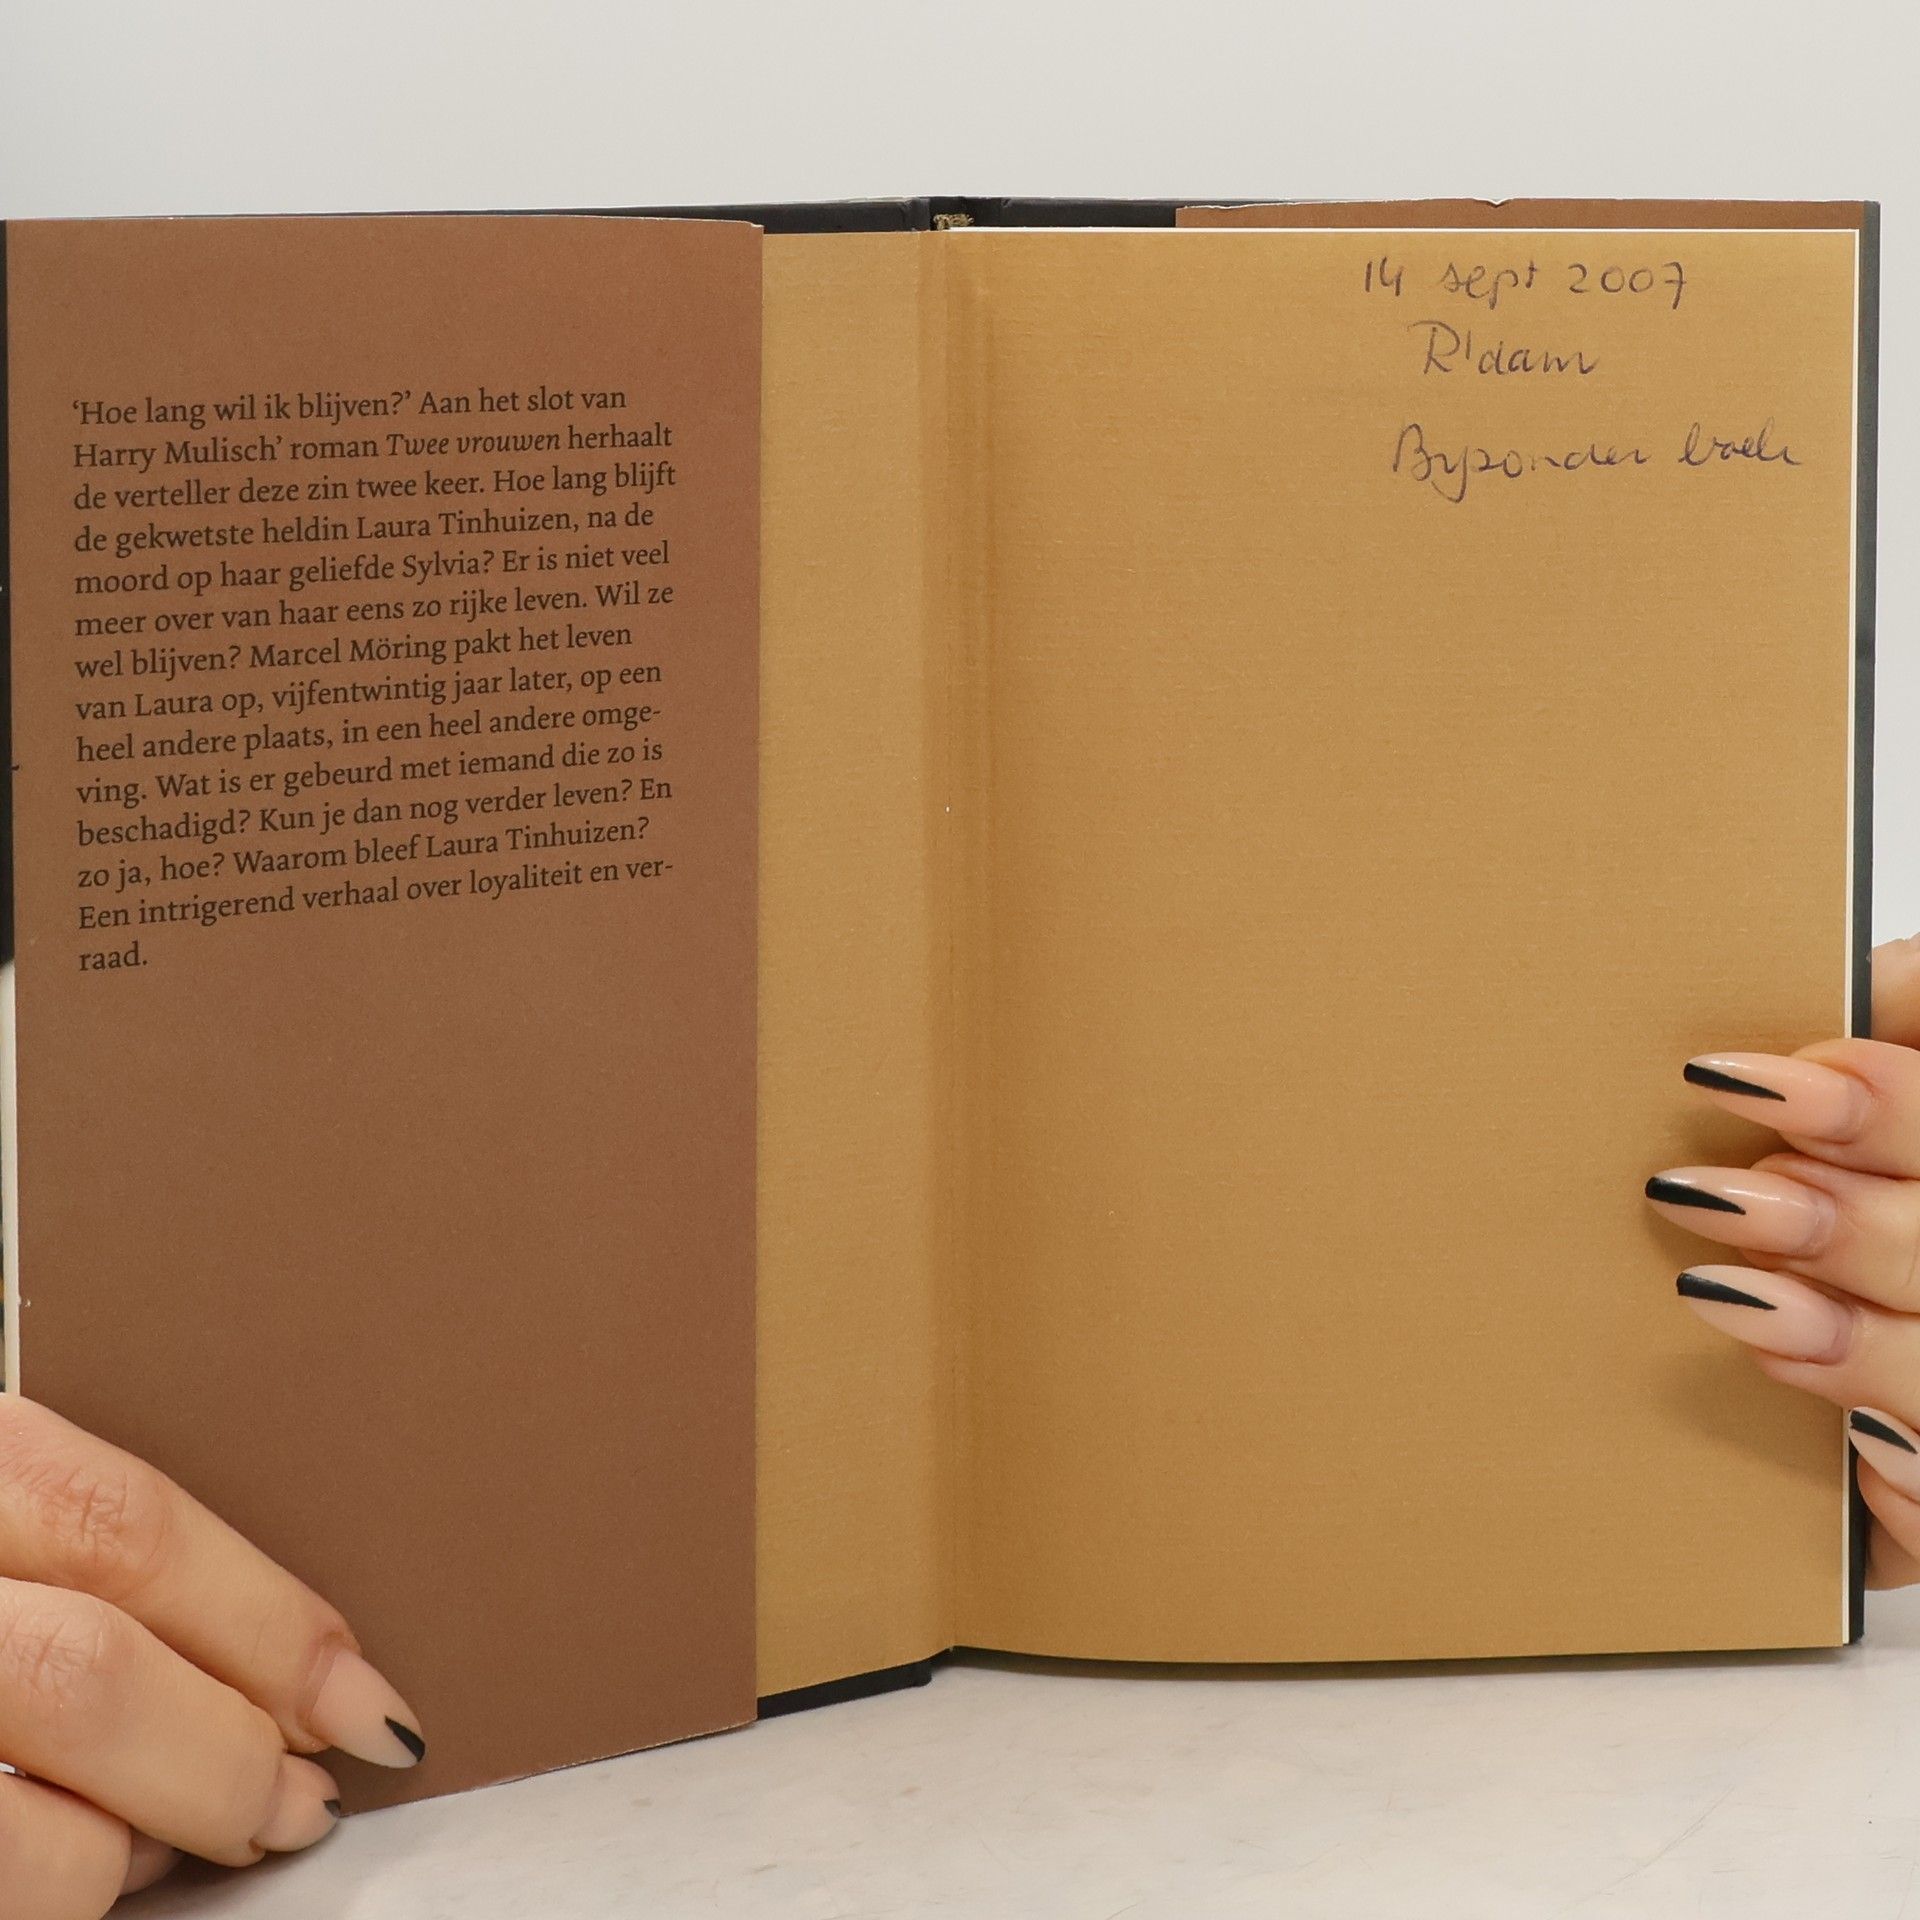 ‘Hoe lang wil ik blijven?’ Aan het slot van
Harry Mulisch’ roman Twee vrouwen herhaalt
de verteller deze zin twee keer. Hoe lang blijft
de gekwetste heldin Laura Tinhuizen, na de
moord op haar geliefde Sylvia? Er is niet veel
meer over van haar eens zo rijke leven. Wil ze
wel blijven? Marcel Möring pakt het leven
van Laura op, vijfentwintig jaar later, op een
heel andere plaats, in een heel andere omge-
ving. Wat is er gebeurd met iemand die zo is
beschadigd? Kun je dan nog verder leven? En
zo ja, hoe? Waarom bleef Laura Tinhuizen?
Een intrigerend verhaal over loyaliteit en ver-
raad.
14 sept 2007
R'dam
Byzonder boek